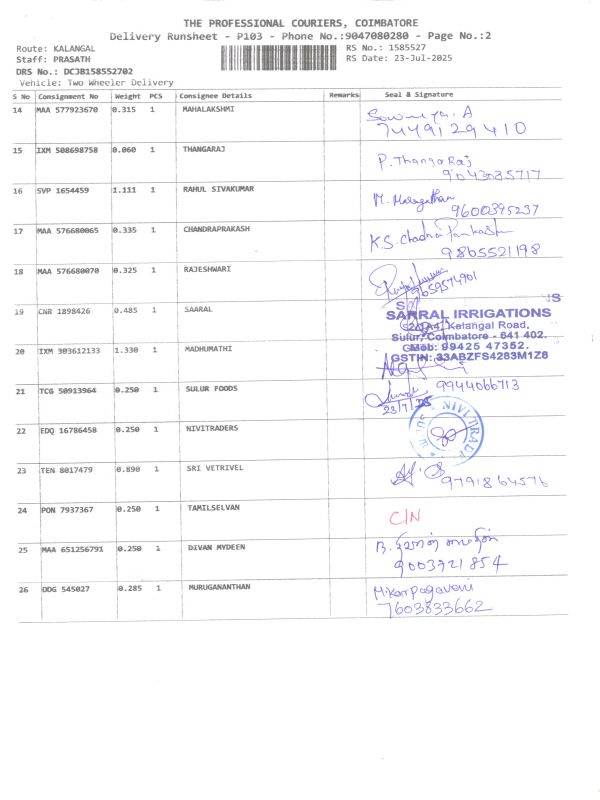 THE PROFESSIONAL COURIERS, COIMBATORE
Delivery Runsheet - P103 - Phone No.:9047080280 - Page No.:2
Route: KALANGAL
RS No.: 1585527
Staff: PRASATH
RS Date: 23-Jul-2025
DRS No.: DCJB158552702
Vehicle: Two Wheeler Delivery
S No Consignment No Weight PCS Consignee Details Remarks Seal & Signature
14 MAA 577923670 0.315 1 MAHALAKSHMI
7449129410
15 IXM 508698758 0.060 1 THANGARAJ P. ThangaRaj
9043035717
16 SVP 1654459 1.111 1 RAHUL SIVAKUMAR
9600395237
17 MAA 576680065 0.335 1 CHANDRAPRAKASH K.S.
9865521198
18 MAA 576680070 0.325 1 RAJESHWARI
9659574901
19 CNR 1898426 0.485 1 SAARAL
SARRAL IRRIGATIONS
Kalangal Road,
Sulur, Coimbatore - 641 402.
Mob: 99425 47352.
GSTIN: 33ABZFS4283M1Z8
20 IXM 303612133 1.330 1 MADHUMATHI
21 TCG 50913964 0.250 1 SULUR FOODS 9944066713
23/7/25
22 EDQ 16786458 0.250 1 NIVITRADERS
23 TEN 8017479 0.890 1 SRI VETRIVEL
9791864576
24 PON 7937367 0.250 1 TAMILSELVAN C/N
25 MAA 651256791 0.250 1 DIVAN MYDEEN
9003921854
26 DDG 545027 0.285 1 MURUGANANTHAN M.Karpagavani
7603833662